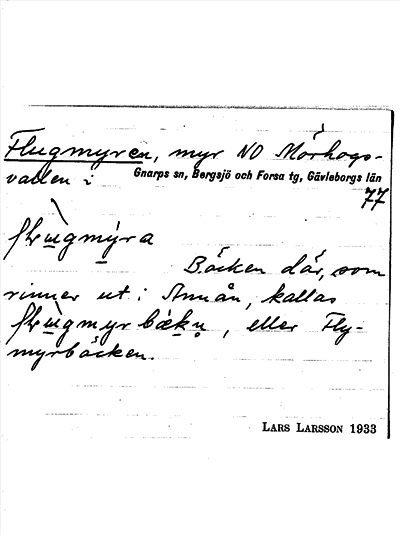 Flugmyren, myr NO Mörhogs-
vallen i Gnarps sn, Bergsjö och Forsa tg, Gävleborgs län
77
flu̲gmy̲ra
Bäcken där, som
rinner ut i Annån, kallas
flu̲gmyrbæ̲kn̥, eller Fly-
myrbäcken.
LARS LARSSON 1933